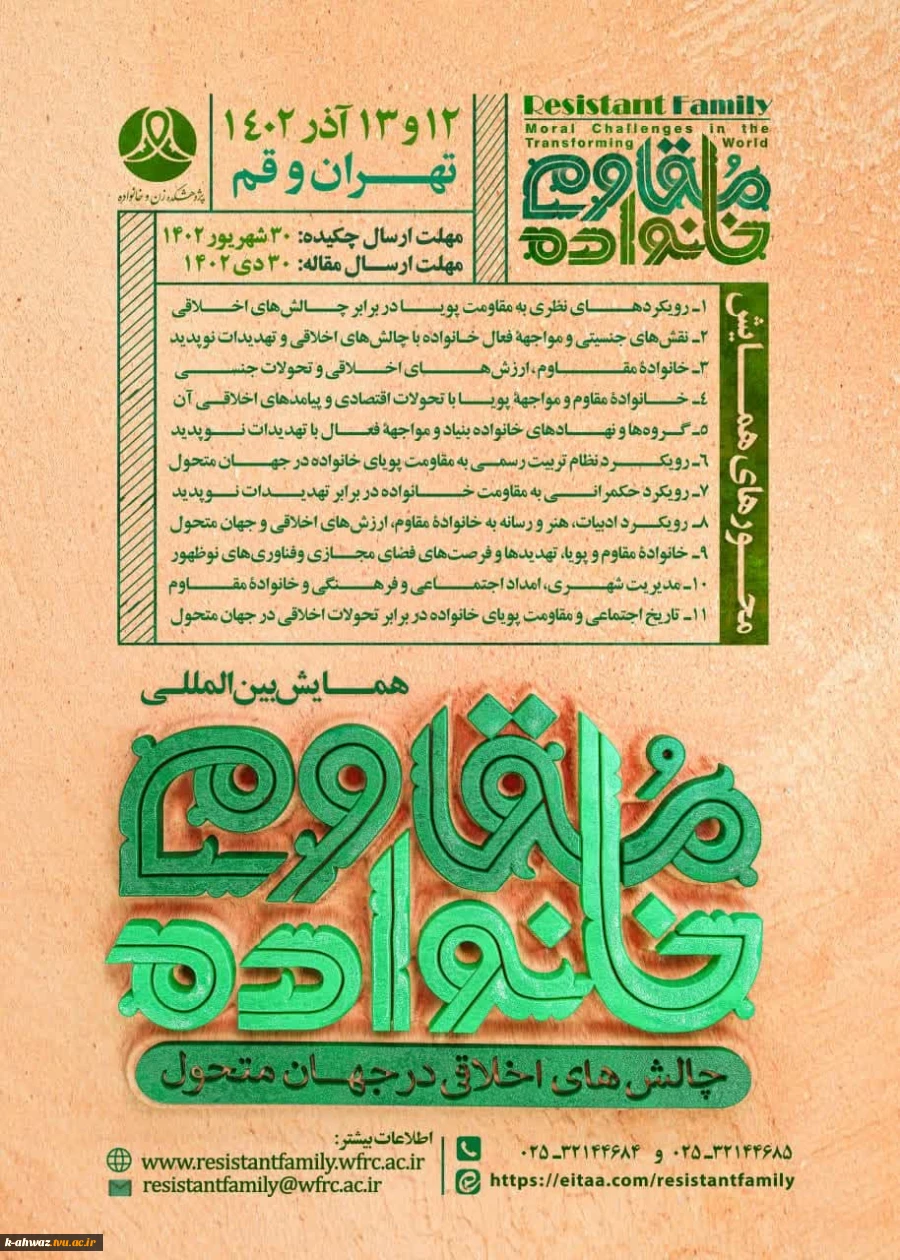 Resistant Family
Moral Challenges in the
Transforming World
خانواده مُقاوم
۱۲ و ۱۳ آذر ۱۴۰۲
تهران و قم
پژوهشکده زن و خانواده
مهلت ارسال چکیده: ۳۰ شهریور ۱۴۰۲
مهلت ارسال مقاله: ۳۰ دی ۱۴۰۲
محورهای همایش
۱ـ رویکردهای نظری به مقاومت پویا در برابر چالش‌های اخلاقی
۲ـ نقش‌های جنسیتی و مواجههٔ فعال خانواده با چالش‌های اخلاقی و تهدیدات نوپدید
۳ـ خانوادهٔ مقاوم، ارزش‌های اخلاقی و تحولات جنسی
۴ـ خانوادهٔ مقاوم و مواجههٔ پویا با تحولات اقتصادی و پیامدهای اخلاقی آن
۵ـ گروه‌ها و نهادهای خانواده بنیاد و مواجههٔ فعال با تهدیدات نوپدید
۶ـ رویکرد نظام تربیت رسمی به مقاومت پویای خانواده در جهان متحول
۷ـ رویکرد حکمرانی به مقاومت خانواده در برابر تهدیدات نوپدید
۸ـ رویکرد ادبیات، هنر و رسانه به خانوادهٔ مقاوم، ارزش‌های اخلاقی و جهان متحول
۹ـ خانوادهٔ مقاوم و پویا، تهدیدها و فرصت‌های فضای مجازی وفناوری‌های نوظهور
۱۰ـ مدیریت شهری، امداد اجتماعی و فرهنگی و خانوادهٔ مقاوم
۱۱ـ تاریخ اجتماعی و مقاومت پویای خانواده در برابر تحولات اخلاقی در جهان متحول
همایش بین‌المللی
خانواده مُقاوم
چالش های اخلاقی در جهان متحول
۰۲۵-۳۲۱۴۴۶۸۵ و ۰۲۵-۳۲۱۴۴۶۸۴
https://eitaa.com/resistantfamily
اطلاعات بیشتر:
www.resistantfamily.wfrc.ac.ir
resistantfamily@wfrc.ac.ir
k-ahwaz.tvu.ac.ir